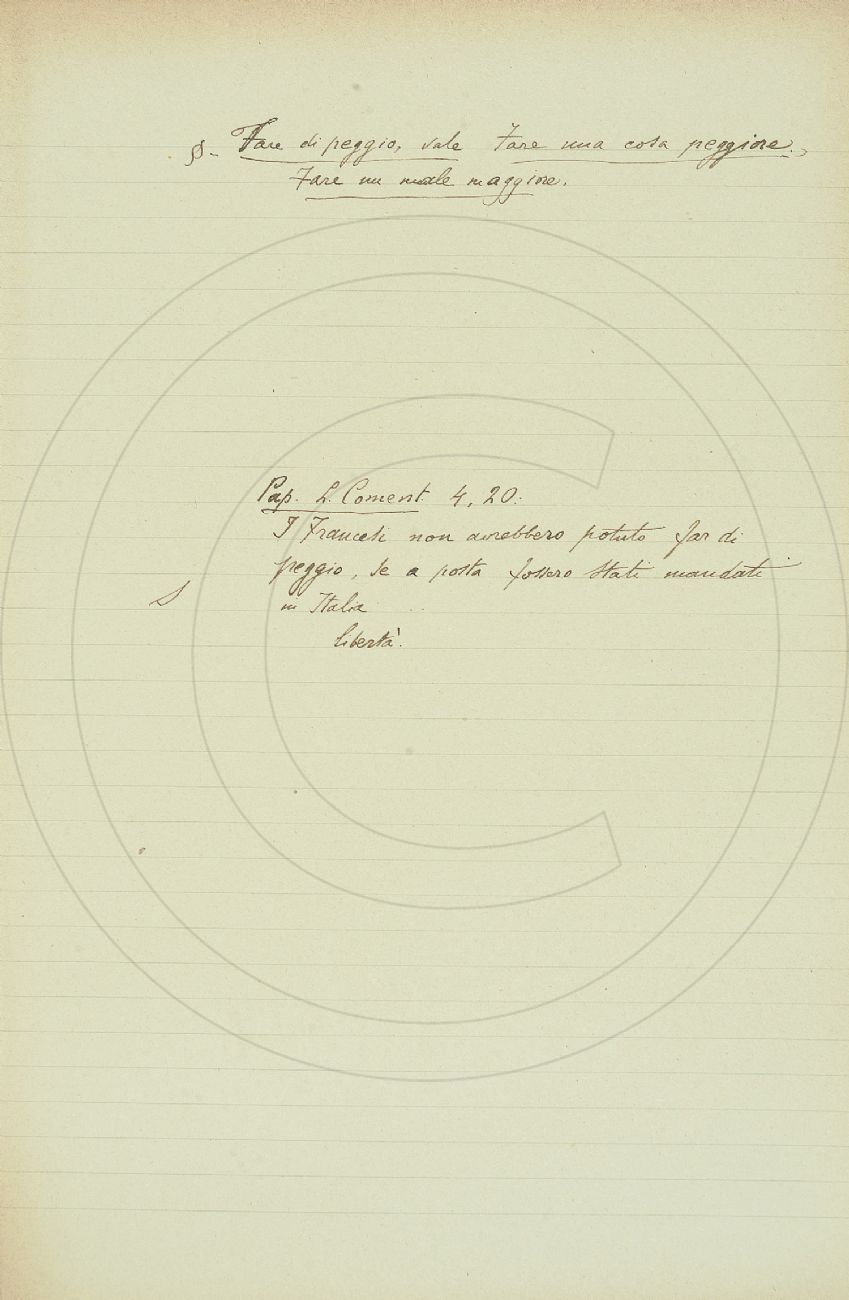 §- Fare di peggio, vale Fare una cosa peggiore.,
Fare un male maggiore.
Pap. L. Coment. 4, 20:
I Francesi non avrebbero potuto far di
peggio, se a posta fossero stati mandati
in Italia ..
libertà.